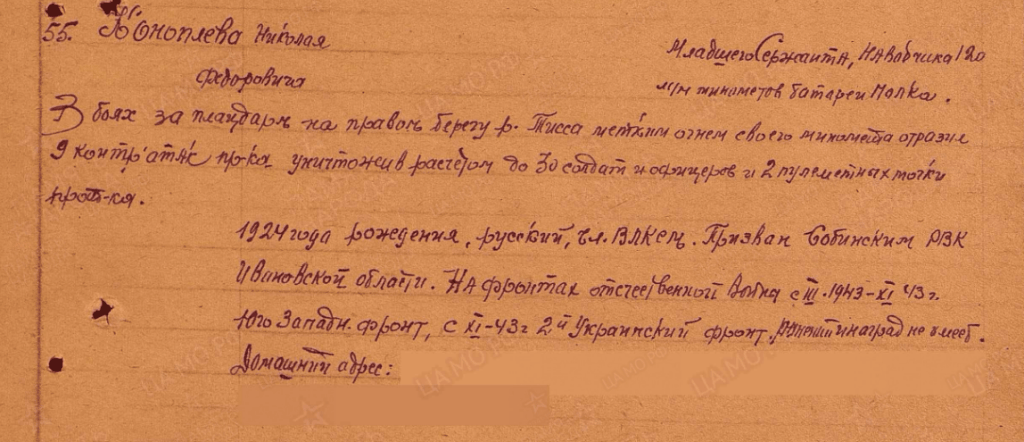 55. Коноплева Николая
Федоровича
Младшего Сержанта, наводчика 120
м/м минометов батареи полка.
В боях за плацдарм на правом берегу р. Тисса метким огнем своего миномета отразил
9 контратак пр-ка уничтожив расчетом до 30 солдат и офицеров и 2 пулеметных точки
прот-ка.
1924 года рождения, русский, чл. ВЛКСМ. Призван Собинским РВК
Ивановской области. На фронтах отечественной войны с III.1943-XI 43г.
Юго Западн. фронт, с XI-43г 2й Украинский фронт, наград не имеет.
Домашний адрес: